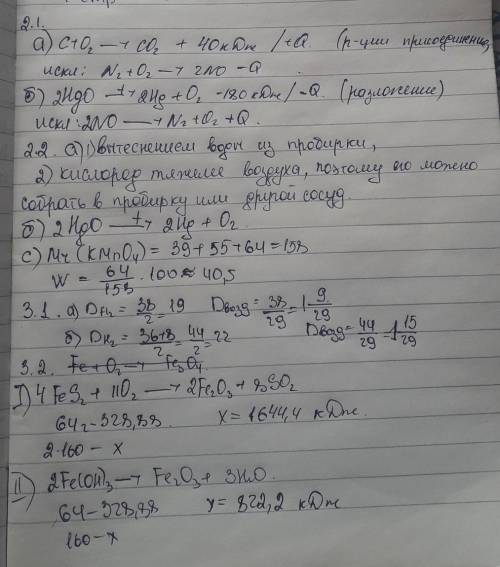 2.1.
а) C+O₂ → CO₂ + 40 кДж /+Q. (р-ции присоединение,
искл: N₂+O₂ → 2NO -Q
б) 2HgO -t→ 2Hg + O₂ -180 кДж/-Q. (разложение)
искл: 2NO → N₂+O₂+Q.
2.2. а) 1) вытеснением воды из пробирки,
2) кислород тяжелее воздуха, поэтому его можно
собрать в пробирку или другой сосуд.
б) 2HgO -t→ 2Hg + O₂.
c) Mr (KMnO₄) = 39+55+64=158
W = 64/158 · 100 ≈ 40,5
3.1. а) DH₂ = 38/2 = 19 Dвозд = 38/29 = 1 9/29
б) DH₂ = 36+8/2 = 44/2 = 22 Dвозд = 44/29 = 1 15/29
3.2. Fe + O₂ → Fe₃O₄.
I) 4FeS₂ + 11O₂ → 2Fe₂O₃ + 8SO₂
64г - 328,88 x = 1644,4 кДж.
2·160 - x
II) 2Fe(OH)₃ → Fe₂O₃ + 3H₂O.
64 - 328,88 y = 822,2 кДж
160 - x